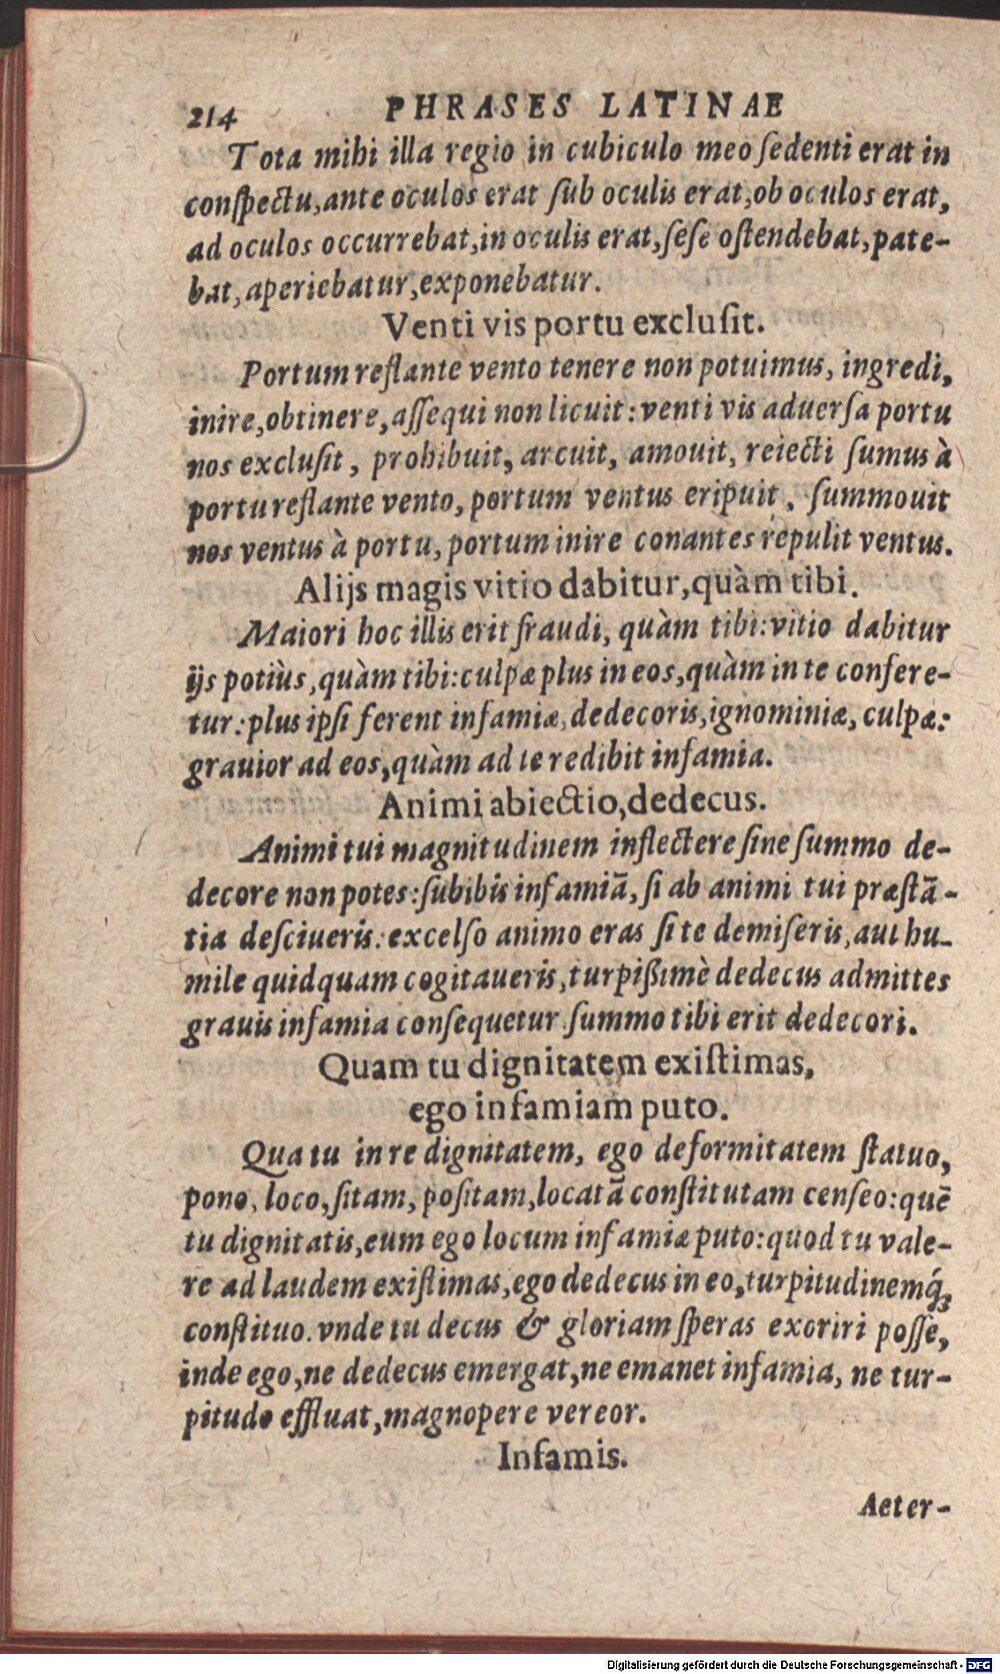 214 PHRASES LATINAE
Tota mihi illa regio in cubiculo meo ſedenti erat in
conſpectu,ante oculos erat ſub oculis erat,ob oculos erat,
ad oculos occurrebat,in oculis erat,ſeſe oſtendebat,pate-
bat,aperiebatur,exponebatur.
Venti vis portu excluſit.
Portum reflante vento tenere non potuimus, ingredi,
inire,obtinere,aſſequi non licuit:venti vis aduerſa portu
nos excluſit, prohibuit, arcuit, amouit, reiecti ſumus à
portu reflante vento, portum ventus eripuit, ſummouit
nos ventus à portu, portum inire conantes repulit ventus.
Alijs magis vitio dabitur,quàm tibi.
Maiori hoc illis erit fraudi, quàm tibi:vitio dabitur
ijs potiùs,quàm tibi:culpæ plus in eos,quàm in te confere-
tur:plus ipſi ferent infamiæ,dedecoris,ignominiæ, culpæ:
grauior ad eos,quàm ad te redibit infamia.
Animi abiectio,dedecus.
Animi tui magnitudinem inflectere ſine ſummo de-
decore non potes:ſubibis infamiā, ſi ab animi tui præſtā-
tia deſciueris:excelſo animo eras ſi te demiſeris,aut hu-
mile quidquam cogitaueris,turpißimè dedecus admittes
grauis infamia conſequetur ſummo tibi erit dedecori.
Quam tu dignitatem exiſtimas,
ego infamiam puto.
Qua tu in re dignitatem, ego deformitatem ſtatuo,
pono, loco,ſitam, poſitam,locatā conſtitutam cenſeo:quē
tu dignitatis,eum ego locum infamiæ puto:quod tu vale-
re ad laudem exiſtimas,ego dedecus in eo,turpitudinemq́ꝫ
conſtituo.vnde tu decus & gloriam ſperas exoriri poſſe,
inde ego,ne dedecus emergat,ne emanet infamia, ne tur-
pitudo effluat,magnopere vereor.
Infamis.
Aeter-
Digitalisierung gefördert durch die Deutsche Forschungsgemeinschaft - DFG